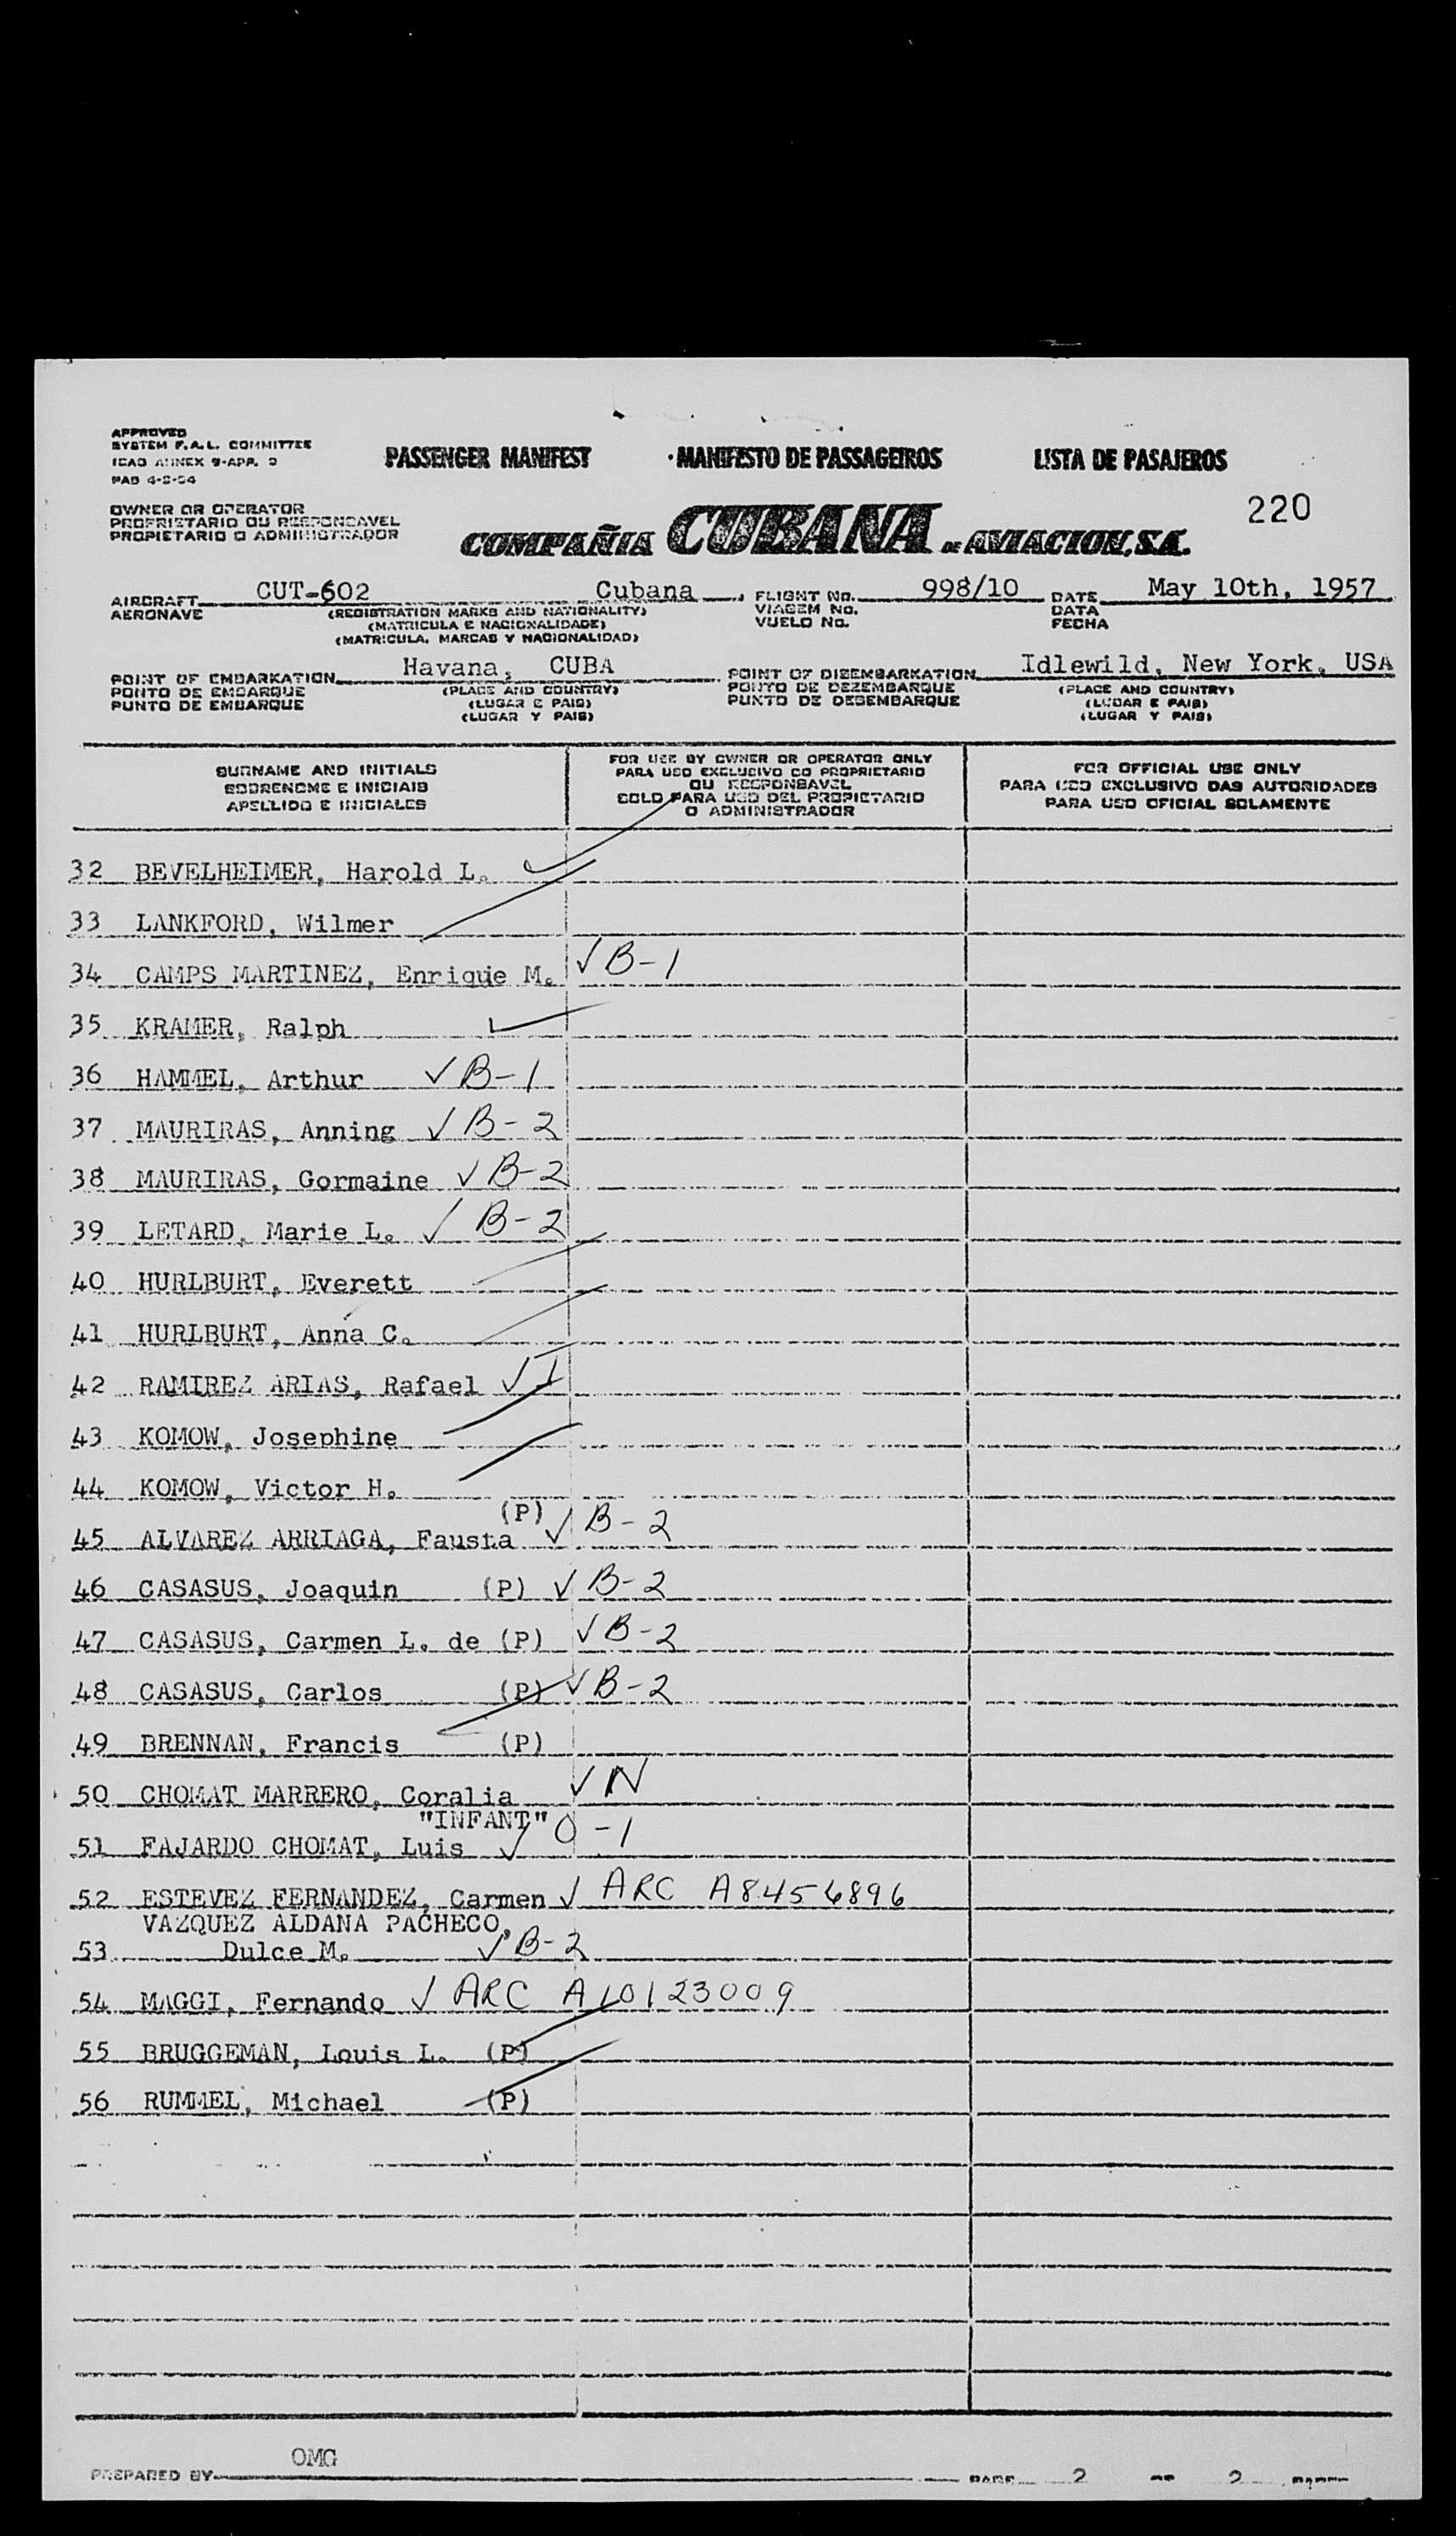 APPROVED
SYSTEM F.A.L. COMMITTEE
ICAO ANNEX 9-APP. 3
PAB 4-2-54
PASSENGER MANIFEST MANIFESTO DE PASSAGEIROS LISTA DE PASAJEROS
220
OWNER OR OPERATOR
PROPRIETARIO OU RESPONSAVEL
PROPIETARIO O ADMINISTRADOR
COMPAÑIA CUBANA DE AVIACION, S.A.
AIRCRAFT CUT-602 Cubana, FLIGHT No. 998/10 DATE May 10th, 1957
AERONAVE (REGISTRATION MARKS AND NATIONALITY) VIAGEM No. DATA
(MATRICULA E NACIONALIDADE) VUELO No. FECHA
(MATRICULA, MARCAS Y NACIONALIDAD)
POINT OF EMBARKATION Havana, CUBA POINT OF DISEMBARKATION Idlewild, New York, USA
PONTO DE EMBARQUE (PLACE AND COUNTRY) PONTO DE DEZEMBARQUE (PLACE AND COUNTRY)
PUNTO DE EMBARQUE (LUGAR E PAIS) PUNTO DE DESEMBARQUE (LUGAR E PAIS)
(LUGAR Y PAIS) (LUGAR Y PAIS)
SURNAME AND INITIALS
SOBRENOME E INICIAIS
APELLIDO E INICIALES
FOR USE BY OWNER OR OPERATOR ONLY
PARA USO EXCLUSIVO DO PROPRIETARIO
OU RESPONSAVEL
SOLO PARA USO DEL PROPIETARIO
O ADMINISTRADOR
FOR OFFICIAL USE ONLY
PARA USO EXCLUSIVO DAS AUTORIDADES
PARA USO OFICIAL SOLAMENTE
32 BEVELHEIMER, Harold L. ✓
33 LANKFORD, Wilmer
34 CAMPS MARTINEZ, Enrique M. ✓ B-1
35 KRAMER, Ralph ✓
36 HAMMEL, Arthur ✓ B-1
37 MAURIRAS, Anning ✓ B-2
38 MAURIRAS, Gormaine ✓ B-2
39 LETARD, Marie L. ✓ B-2
40 HURLBURT, Everett
41 HURLBURT, Anna C.
42 RAMIREZ ARIAS, Rafael ✓ I
43 KOMOW, Josephine
44 KOMOW, Victor H.
45 ALVAREZ ARRIAGA, Fausta (P) ✓ B-2
46 CASASUS, Joaquin (P) ✓ B-2
47 CASASUS, Carmen L. de (P) ✓ B-2
48 CASASUS, Carlos (P) ✓ B-2
49 BRENNAN, Francis (P)
50 CHOMAT MARRERO, Coralia ✓ N
"INFANT"
51 FAJARDO CHOMAT, Luis ✓ O-1
52 ESTEVEZ FERNANDEZ, Carmen ✓ ARC A8456896
VAZQUEZ ALDANA PACHECO,
53 Dulce M. ✓ B-2
54 MAGGI, Fernando ✓ ARC A10123009
55 BRUGGEMAN, Louis L. (P)
56 RUMMEL, Michael (P)
PREPARED BY OMG PAGE 2 OF 2